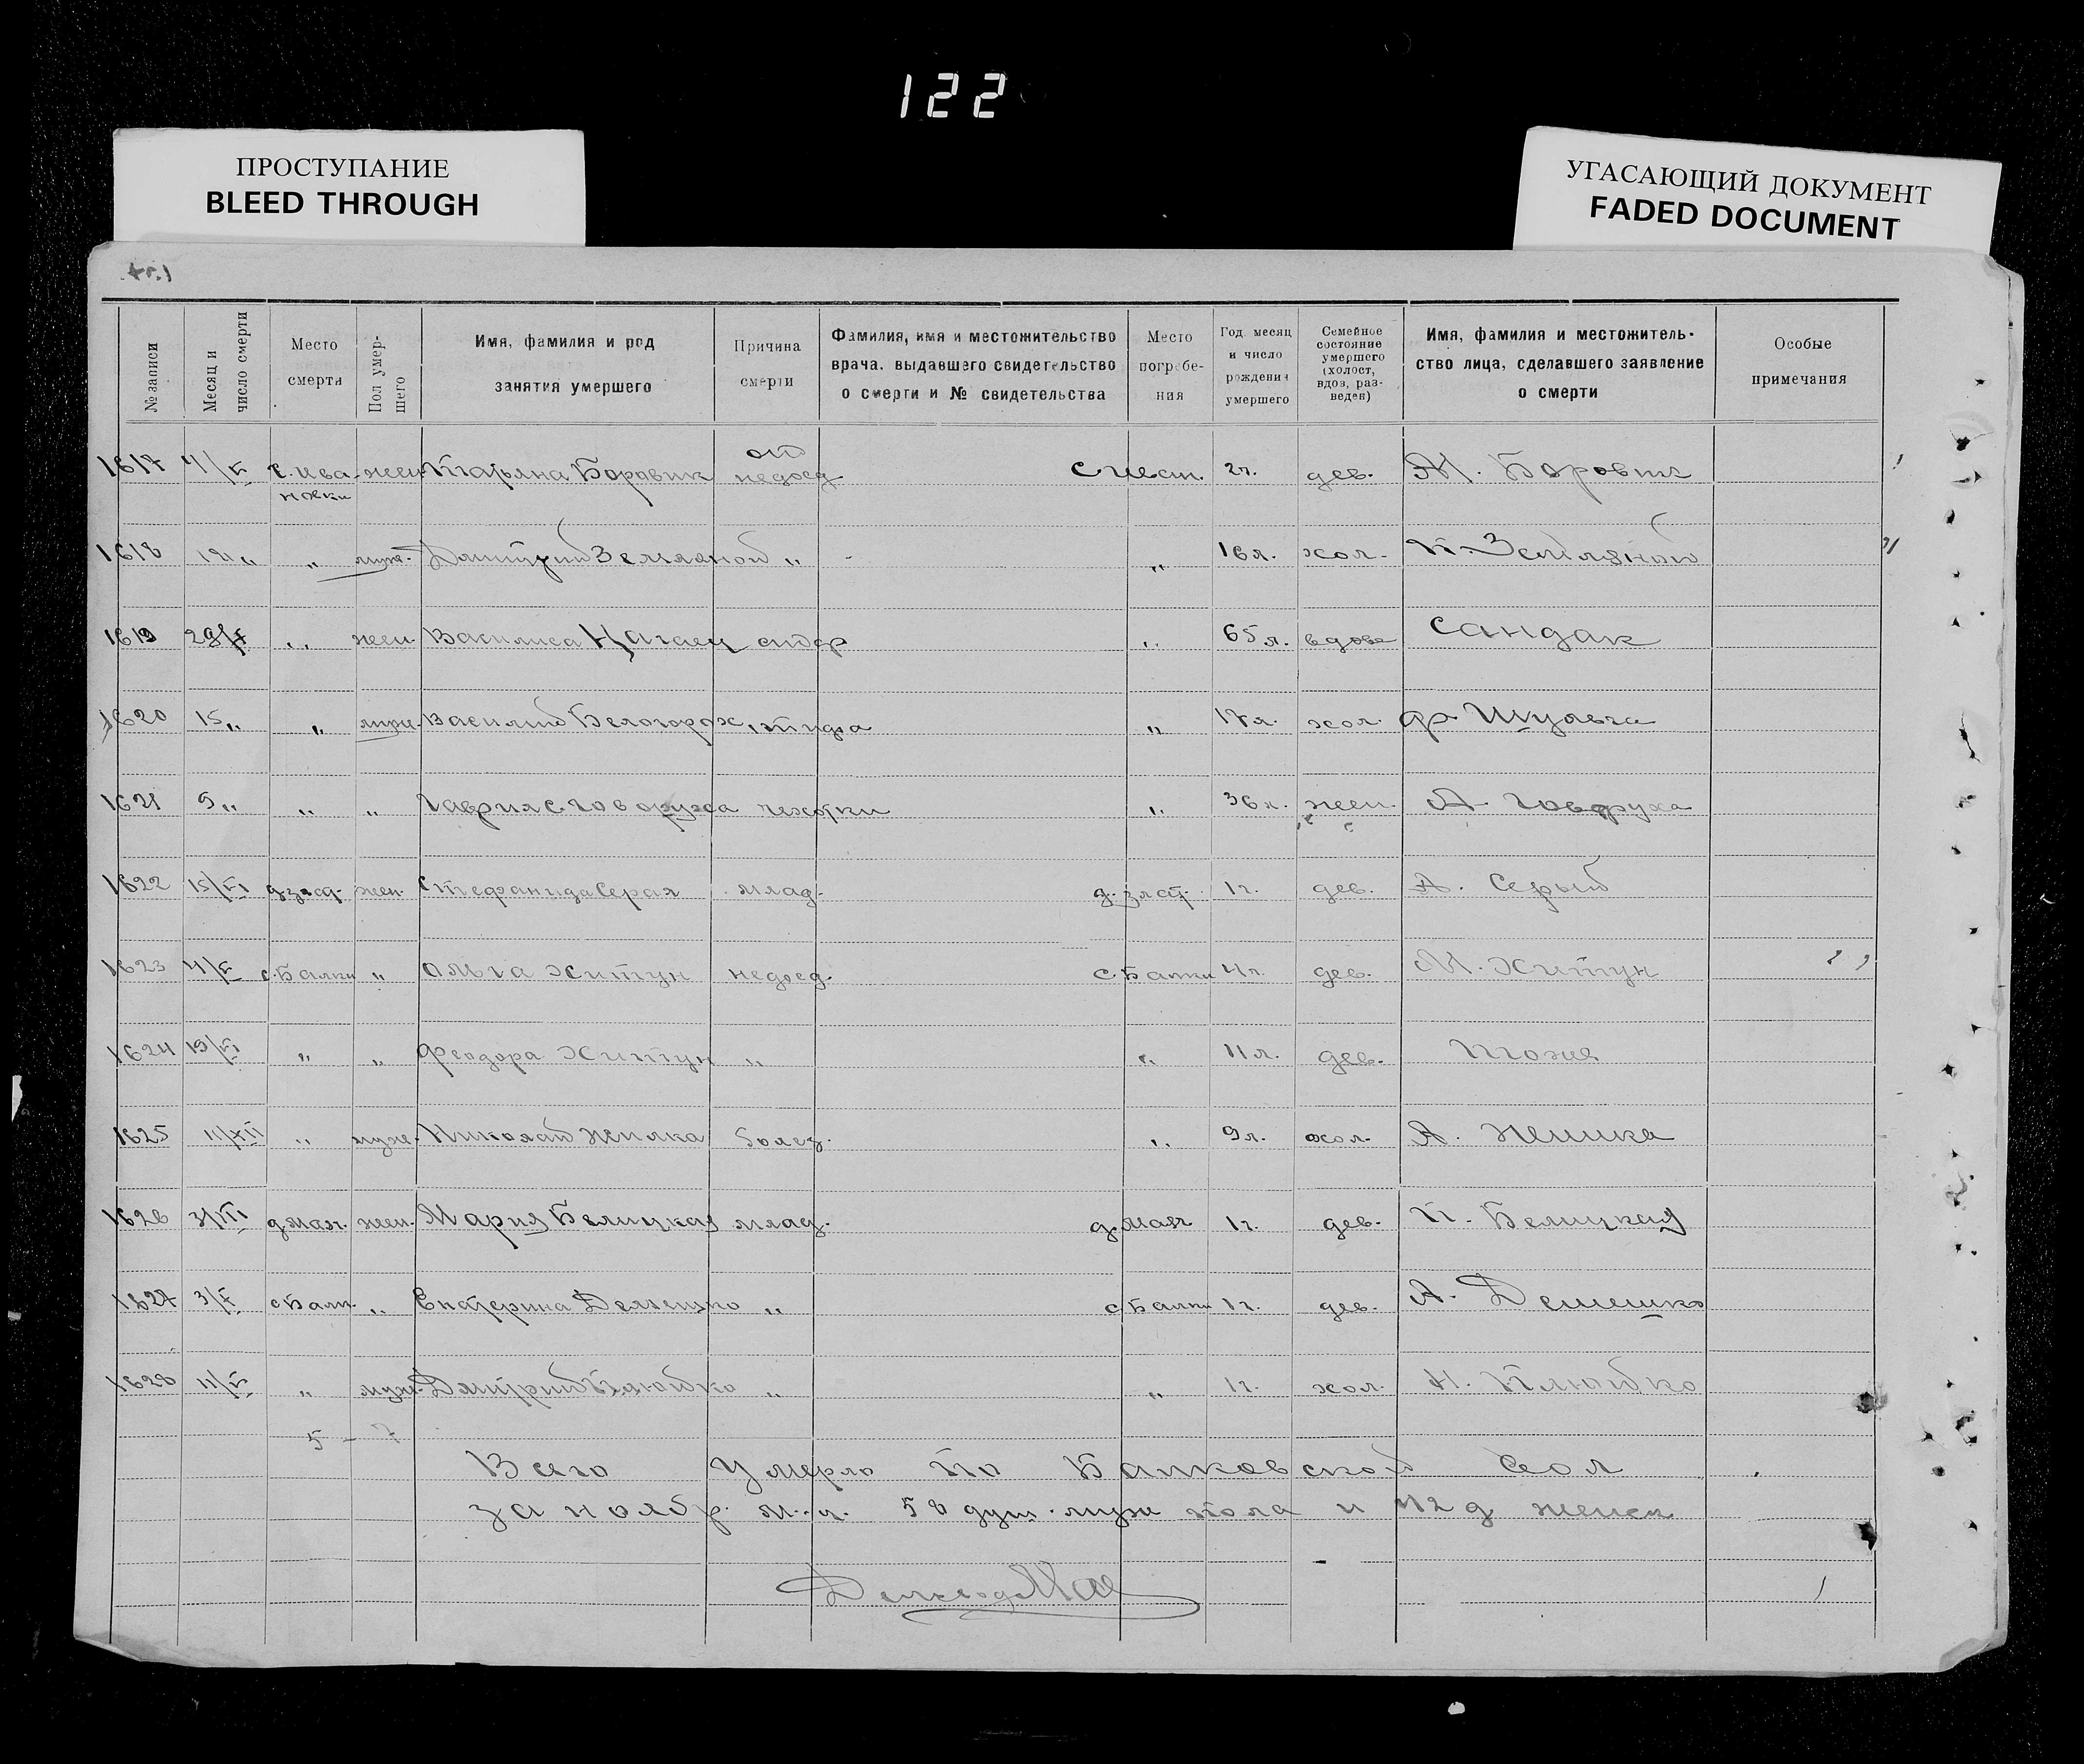 122
ПРОСТУПАНИЕ
BLEED THROUGH
УГАСАЮЩИЙ ДОКУМЕНТ
FADED DOCUMENT
№ записи
Месяц и число смерти
Место смерти
Пол умер-шего
Имя, фамилия и род занятия умершего
Причина смерти
Фамилия, имя и местожительство врача, выдавшего свидетельство о смерти и № свидетельства
Место погребе-ния
Год, месяц и число рождения умершего
Семейное состояние умершего (холост, вдов, раз-веден)
Имя, фамилия и местожитель-ство лица, сделавшего заявление о смерти
Особые примечания
1617 с. Ива-новки жен. Татьяна Боровик от недоед. с мест. 2г. дев. М. Боровик
1618 „ „ муж. Дмитрий Земляной „ „ 16л. хол. П. Земляной
1619 „ жен. Василиса Цагаец „ 65л. вдова Сандак
1620 15 „ „ муж. Василий Белогорох, тифа „ 17л. хол. Ф. Шульга
1621 9 „ „ „ Говоруха чахотки „ 36л. жен. А. Говоруха
1622 15/ д. злат. жен. Стефанида Серая млад. д. злат. 1г. дев. А. Серый
1623 4/ с. Балки „ Ольга Хитун недоед. с. Балки 4г. дев. М. Хитун
1624 19/ „ „ Феодора Хитун „ „ 11л. дев. Тоже
1625 11/XII „ муж. Николай Жилка болез. „ 9л. хол. А. Жилка
1626 3/ д. мая. жен. Мария Белицкая млад. д. мая 1г. дев. П. Белицкая
1627 3/ с Балк. „ Екатерина Демешко „ с Балки 1г. дев. А. Демешко
1628 11/ „ муж. Дмитрий Плюйко „ „ 1г. хол. Н. Плюйко
5 - 7
Всего Умерло по Балковской
за ноябр. м-ц. 58 душ. муж пола и 42 д женск